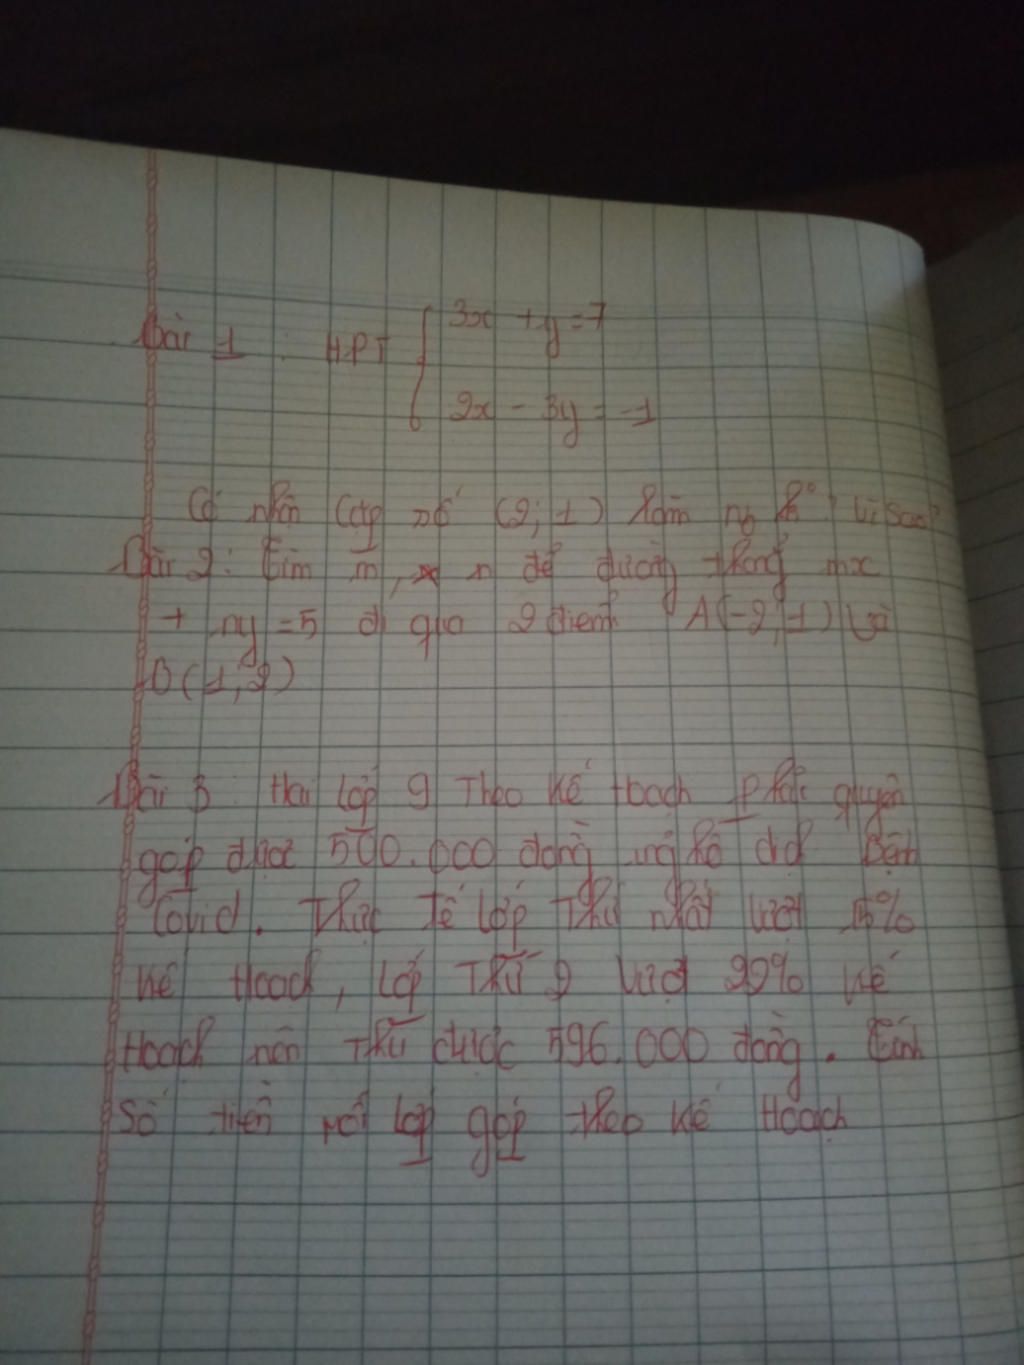 Bài 1 : HPT { 3x + y = 7
2x - 3y = -1
Có nhận cặp số (2; 1) làm no k° ? Vì sao?
Bài 2 : Tìm m, n để đường thẳng mx
+ ny = 5 đi qua 2 điểm A(-2; 1) và
B (1, 2)
Bài 3 : Hai lớp 9 Theo Kế Hoạch phải quyên
góp được 500.000 đồng ủng hộ dịch Bệnh
Covid. Thực Tế lớp Thứ nhất vượt 15%
Kế Hoạch, lớp Thứ 2 vượt 22% Kế
Hoạch nên Thu được 596.000 đồng. Tính
Số tiền mỗi lớp góp theo Kế Hoạch